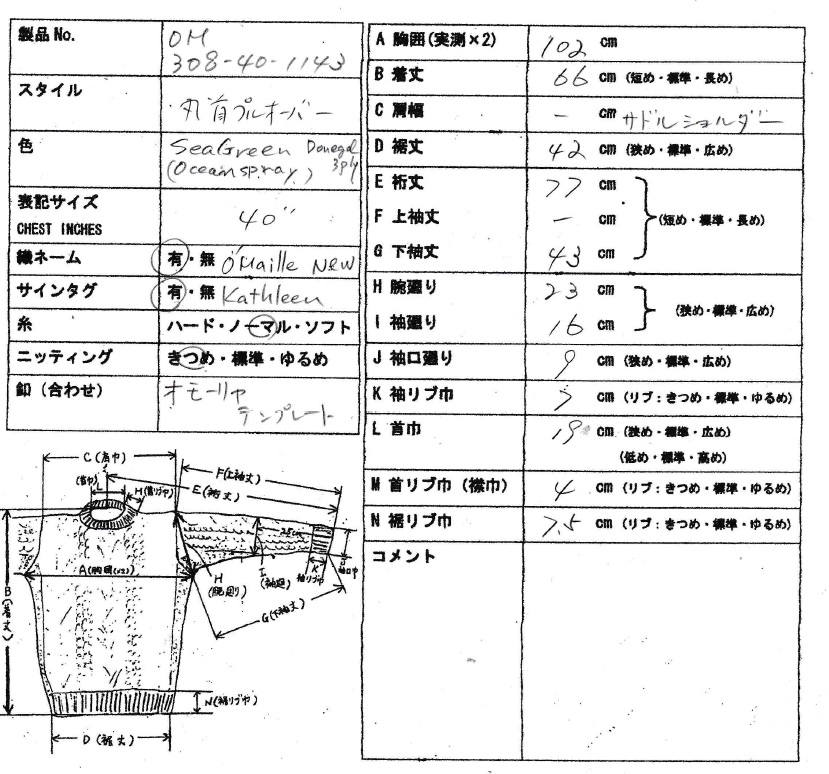 製品No.
OM
308-40-1143
スタイル
丸首プルオーバー
色
SeaGreen Donegal
(Oceanspray) 3ply
表記サイズ
CHEST INCHES
40"
織ネーム
有・無 O'Maille New
サインタグ
有・無 Kathleen
糸
ハード・ノーマル・ソフト
ニッティング
きつめ・標準・ゆるめ
釦（合わせ）
オモーリャ
テンプレート
A 胸囲(実測×2)
102 cm
B 着丈
66 cm (短め・標準・長め)
C 肩幅
- cm サドルショルダー
D 裾丈
42 cm (狭め・標準・広め)
E 裄丈
77 cm
F 上袖丈
- cm (短め・標準・長め)
G 下袖丈
43 cm
H 腕廻り
23 cm
(狭め・標準・広め)
I 袖廻り
16 cm
J 袖口廻り
9 cm (狭め・標準・広め)
K 袖リブ巾
7 cm (リブ：きつめ・標準・ゆるめ)
L 首巾
19 cm (狭め・標準・広め)
(低め・標準・高め)
M 首リブ巾（襟巾）
4 cm (リブ：きつめ・標準・ゆるめ)
N 裾リブ巾
7.5 cm (リブ：きつめ・標準・ゆるめ)
コメント
C(肩巾)
F(上袖丈)
E(裄丈)
(首巾)
L
M(首リブ巾)
A(胸囲(×2))
B(着丈)
H
(腕廻り)
I
(袖廻)
K
袖リブ巾
袖口巾
G(下袖丈)
N(裾リブ巾)
D(裾丈)